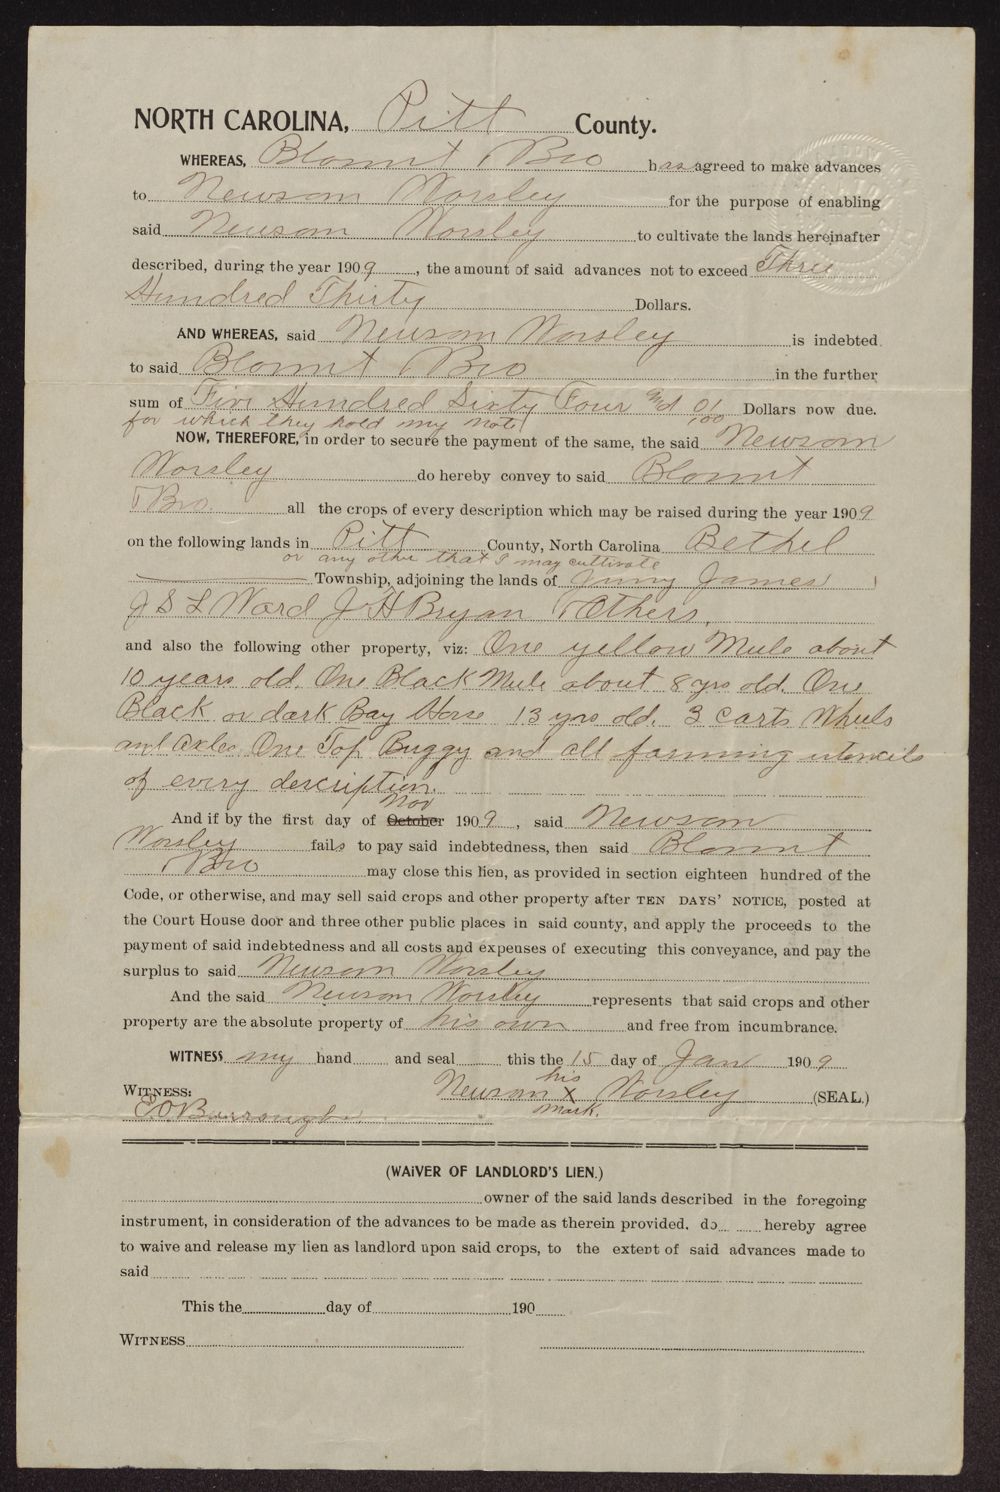 NORTH CAROLINA, Pitt County.
WHEREAS, Blount & Bro has agreed to make advances
to Newsom Worsley for the purpose of enabling
said Newsom Worsley to cultivate the lands hereinafter
described, during the year 1909, the amount of said advances not to exceed Three
Hundred Thirty Dollars.
AND WHEREAS, said Newsom Worsley is indebted
to said Blount & Bro in the further
sum of Five Hundred Sixty Four and 01/100 Dollars now due.
for which they hold my note
NOW, THEREFORE, in order to secure the payment of the same, the said Newsom
Worsley do hereby convey to said Blount
& Bro. all the crops of every description which may be raised during the year 1909
on the following lands in Pitt County, North Carolina Bethel
or any other that I may cultivate
Township, adjoining the lands of Jimy James
J S L Ward J H Bryan & Others.
and also the following other property, viz: One yellow Mule about
10 years old. One Black Mule about 8 yrs old. One
Black or dark Bay Horse 13 yrs old. 3 Carts Wheels
and Axles One Top Buggy and all farming utencils
of every description.
Nov
And if by the first day of October 1909, said Newsom
Worsley fails to pay said indebtedness, then said Blount
& Bro may close this lien, as provided in section eighteen hundred of the
Code, or otherwise, and may sell said crops and other property after TEN DAYS' NOTICE, posted at
the Court House door and three other public places in said county, and apply the proceeds to the
payment of said indebtedness and all costs and expenses of executing this conveyance, and pay the
surplus to said Newsom Worsley
And the said Newsom Worsley represents that said crops and other
property are the absolute property of his own and free from incumbrance.
WITNESS my hand and seal this the 15 day of Jan 1909
his
WITNESS: Newsom X Worsley (SEAL.)
E O Burroughs mark.
(WAIVER OF LANDLORD'S LIEN.)
owner of the said lands described in the foregoing
instrument, in consideration of the advances to be made as therein provided, do hereby agree
to waive and release my lien as landlord upon said crops, to the extent of said advances made to
said
This the day of 190
WITNESS